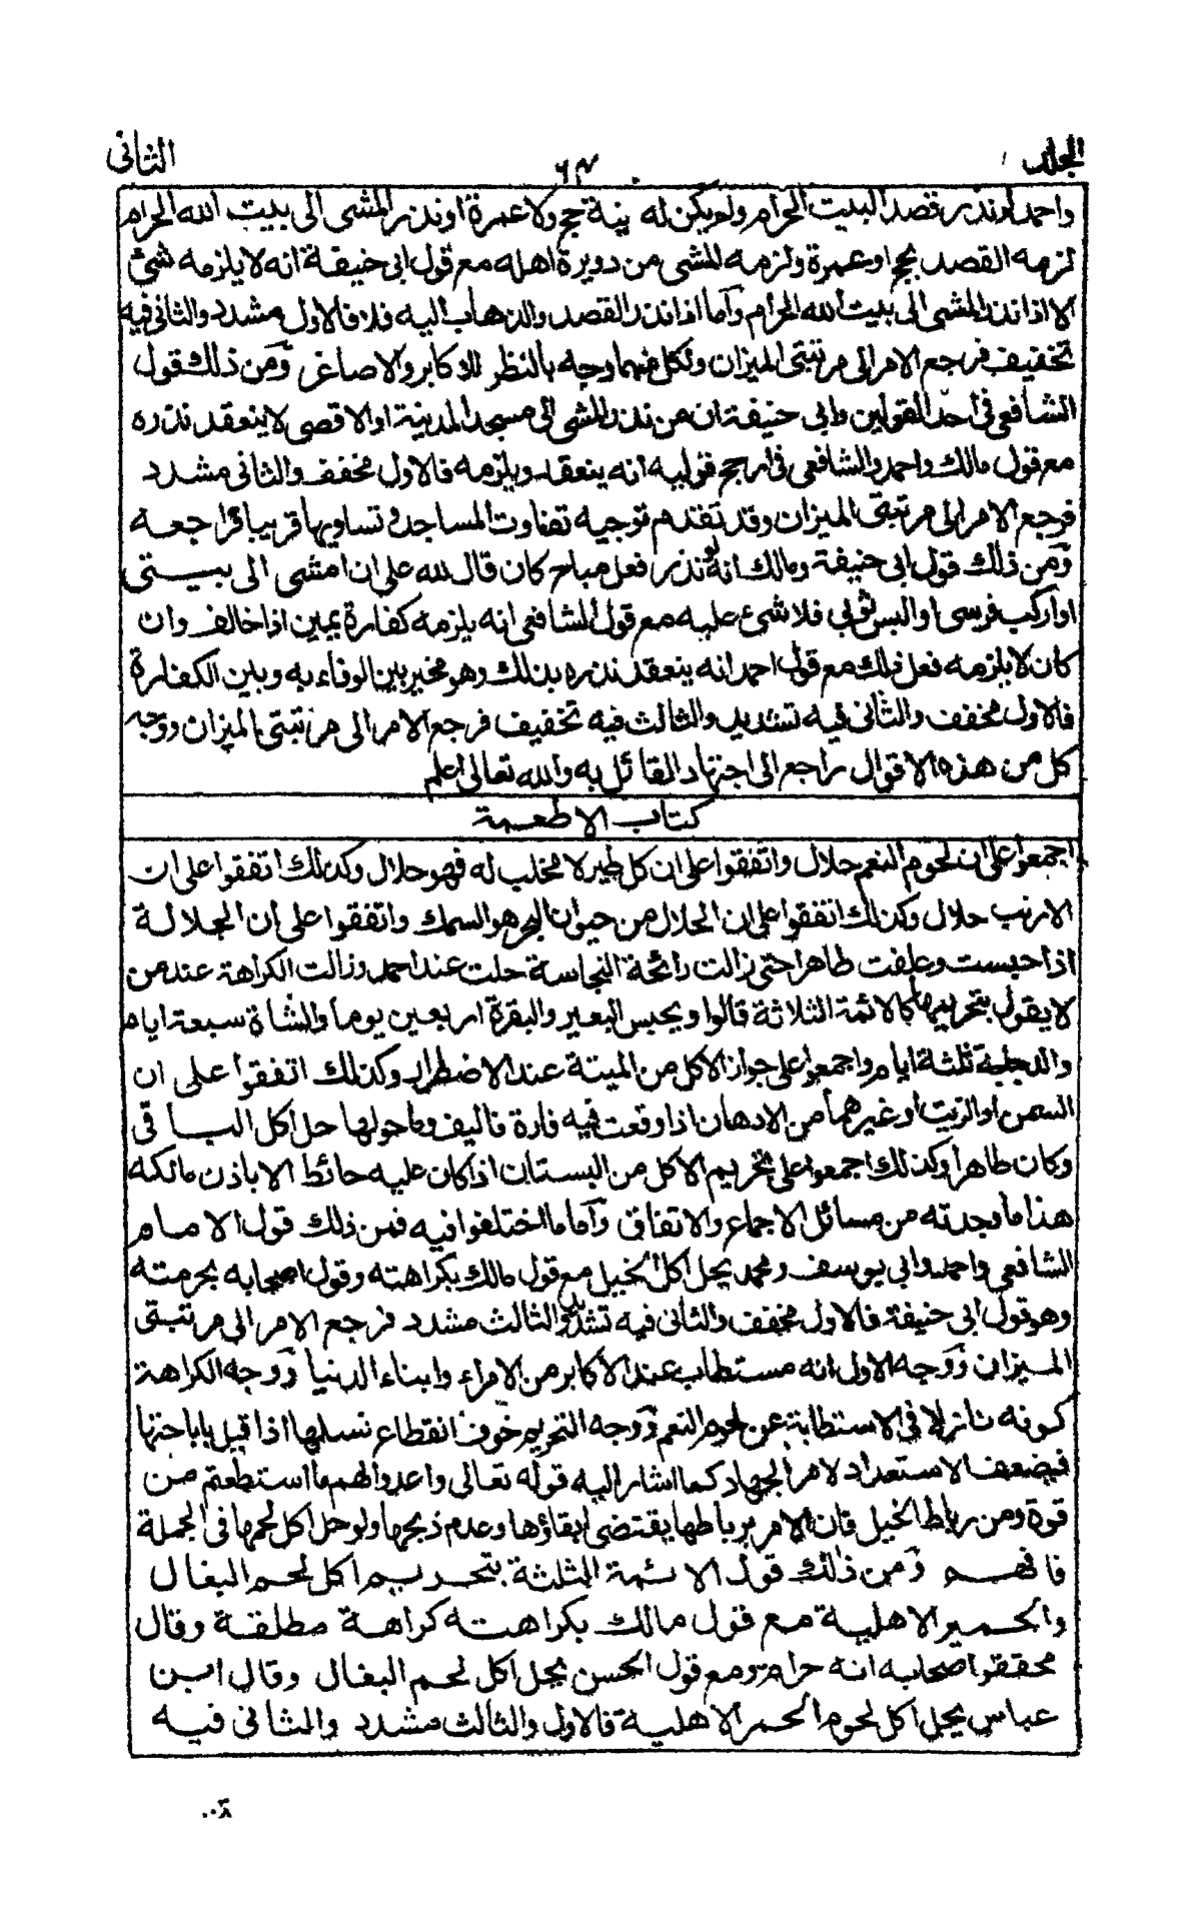 الجلد ٦٤ الثانى
واحمد لو نذر قصد البيت الحرام ولم يكن له نية حج ولا عمرة او نذر المشى الى بيت الله الحرام
لزمه القصد بحج او عمرة ولزمه المشى من دويرة اهله مع قول ابى حنيفة انه لا يلزمه شئ
الا اذا نذر المشى الى بيت الله الحرام وآما اذا نذر القصد والذهاب اليه فلا فالاول مشدد والثانى فيه
تخفيف فرجع الامر الى مرتبتى الميزان ولكل منهما وجه بالنظر للاكابر والاصاغر وٓمن ذلك قول
الشافعى فى احد القولين وابى حنيفة ان من نذر المشى الى مسجد المدينة او الاقصى لا ينعقد نذره
مع قول مالك واحمد والشافعى فى ارجح قوليه انه ينعقد ويلزمه فالاول مخفف والثانى مشدد
فرجع الامر الى مرتبتى الميزان وقد تقدم توجيه تفاوت المساجد وتساويها قريبا فراجعه
وٓمن ذلك قول ابى حنيفة ومالك انه لو نذر فعل مباح كان قال لله على ان امشى الى بيتى
او اركب فرسى او البس ثوبى فلا شئ عليه مع قول الشافعى انه يلزمه كفارة يمين اذا خالف وان
كان لا يلزمه فعل ذلك مع قول احمد انه ينعقد نذره بذلك وهو مخير بين الوفاء به وبين الكفارة
فالاول مخفف والثانى فيه تشديد والثالث فيه تخفيف فرجع الامر الى مرتبتى الميزان ووجه
كل من هذه الاقوال راجع الى اجتهاد القائل به والله تعالى اعلم
كتاب الاطعمة
اجمعوا على ان لحوم النعم حلال واتفقوا على ان كل طير لا مخلب له فهو حلال وكذلك اتفقوا على ان
الارنب حلال وكذلك اتفقوا على ان الحلال من حيوان البحر هو السمك واتفقوا على ان الجلالة
اذا حبست وعلفت طاهرا حتى زالت رائحة النجاسة حلت عند احمد وزالت الكراهة عند من
لا يقول بتحريمها كالائمة الثلاثة قالوا ويحبس البعير والبقرة اربعين يوما والشاة سبعة ايام
والدجاجة ثلثة ايام واجمعوا على جواز الاكل من الميتة عند الاضطرار وكذلك اتفقوا على ان
السمن او الزيت او غيرهما من الادهان اذا وقعت فيه فارة فاليف وما حولها حل اكل الباقى
وكان طاهرا وكذلك اجمعوا على تحريم الاكل من البستان اذا كان عليه حائط الا باذن مالكه
هذا ما وجدته من مسائل الاجماع والاتفاق وآما ما اختلفوا فيه فمن ذلك قول الامام
الشافعى واحمد وابى يوسف ومحمد بحل اكل الخيل مع قول مالك بكراهته وقول اصحابه بحرمته
وهو قول ابى حنيفة فالاول مخفف والثانى فيه تشديد والثالث مشدد فرجع الامر الى مرتبتى
الميزان وٓوجه الاول انه مستطاب عند الاكابر من الامراء وابناء الدنيا وٓوجه الكراهة
كونه نازلا فى الاستطابة عن لحوم النعم وٓوجه التحريم خوف انقطاع نسلها اذا قيل باباحتها
فيضعف الاستعداد لامر الجهاد كما اشار اليه قوله تعالى واعدوا لهم ما استطعتم من
قوة ومن رباط الخيل فان الامر برباطها يقتضى ابقاؤها وعدم ذبحها ولو حل اكل لحمها فى الجملة
فافهم وٓمن ذلك قول الائمة الثلثة بتحريم اكل لحم البغال
والحمير الاهلية مع قول مالك بكراهته كراهة مطلقة وقال
محققو اصحابه انه حرام ومع قول الحسن بحل اكل لحم البغال وقال ابن
عباس يحل اكل لحوم الحمر الاهلية فالاول والثالث مشدد والثانى فيه